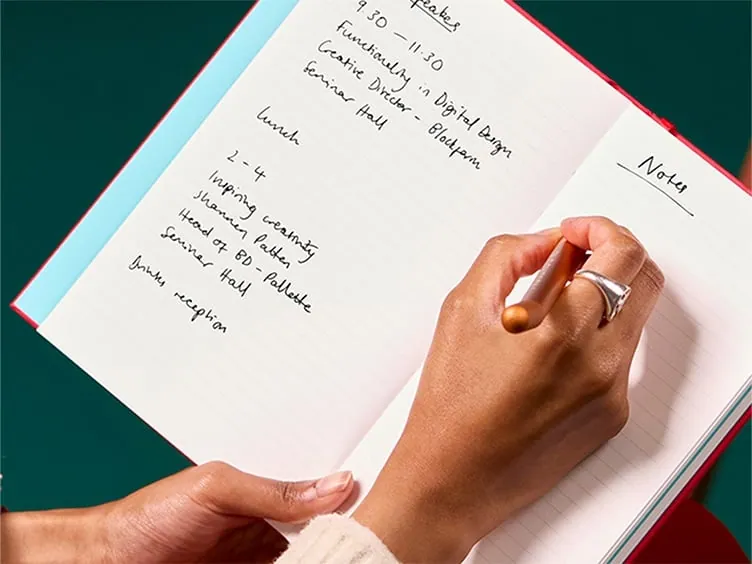 Speakers
9.30 – 11.30
Functionality in Digital Design
Creative Director - Blockform
Seminar Hall
Lunch
2 - 4
Inspiring creativity
Shannen Patten
Head of BD - Pallette
Seminar Hall
Drinks reception
Notes